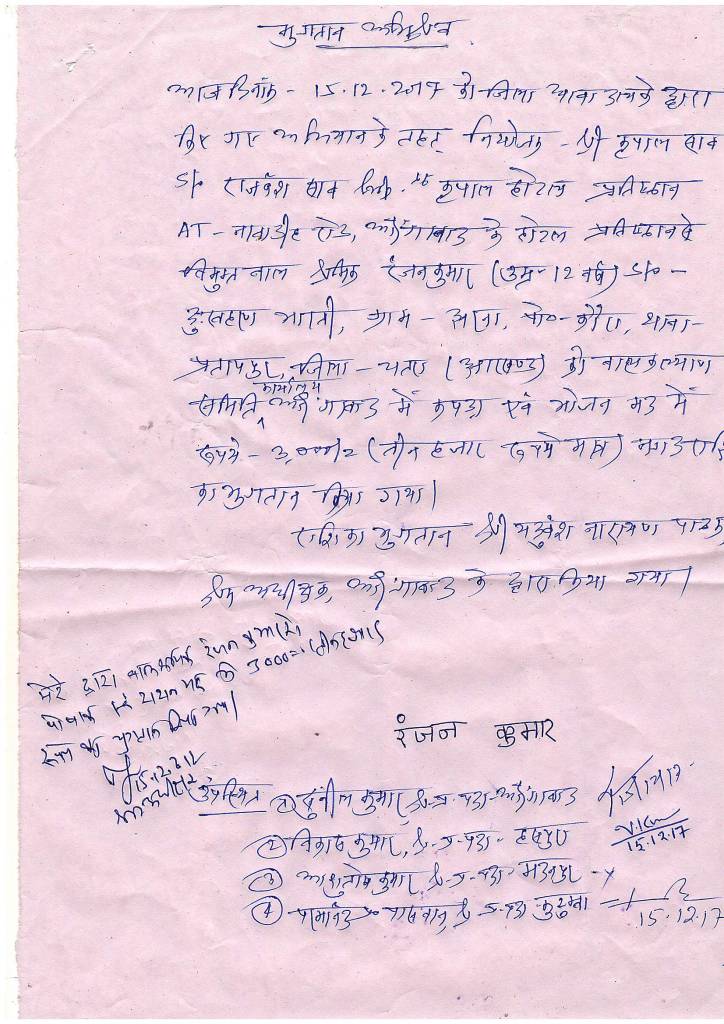 भुगतान अभिलेख
आज दिनांक - 15.12.2017 को जिला धावा दल के द्वारा
किए गए अभियान के तहत् नियोजक - श्री कृपाल साव
S/o राजवंश साव कृपाल होटल प्रतिष्ठान
AT - नावाडीह रोड, औरंगाबाद के होटल प्रतिष्ठान से
विमुक्त बाल श्रमिक रंजन कुमार (उम्र - 12 वर्ष) S/o -
भारती, ग्राम - पो॰ - थाना -
प्रतापपुर, जिला - चतरा (झारखण्ड) को बाल कल्याण
समिति कार्यालय औरंगाबाद में कपड़ा एवं भोजन मद में
रूपये - 3,000/= (तीन हजार रूपये मात्र) नगद राशि
का भुगतान किया गया।
राशि का भुगतान श्री नारायण पाठक
श्रम अधीक्षक, औरंगाबाद के द्वारा किया गया।
मेरे द्वारा बाल श्रमिक रंजन कुमार को
3000=
का भुगतान किया गया।
15.12.2017
रंजन कुमार
उपस्थित ① सुनील कुमार, श्र. प्र. पदा - औरंगाबाद
② विकास कुमार, श्र. प्र. पदा - हसपुरा
15.12.17
③ आशुतोष कुमार, श्र. प्र. पदा - मदनपुर
④ पासवान, श्र. प्र. पदा - कुटुम्बा
15.12.17